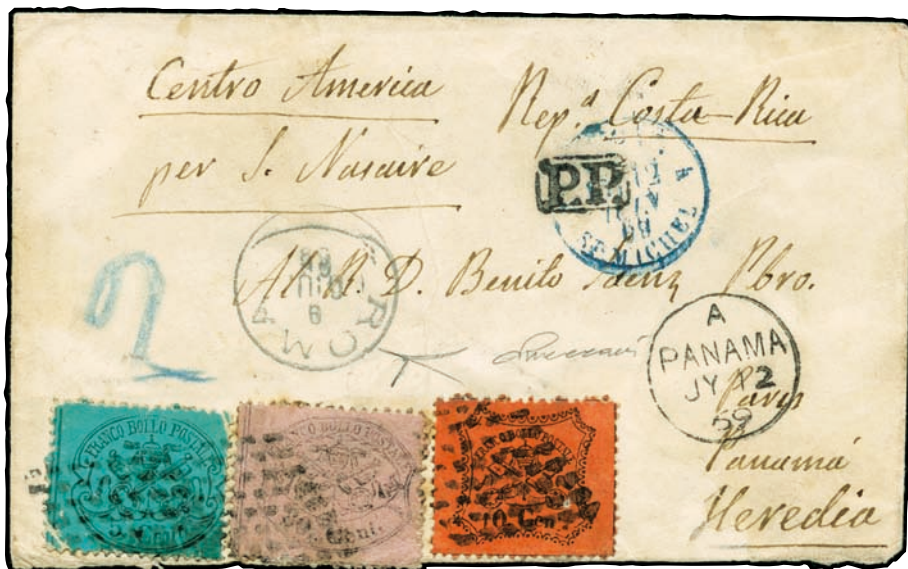 Centro America
Rep.ª Costa-Rica
per S. Nasaire
P.P.
ST MICHEL
69
ROMA
9
GIU
69
Al R. D. Benito Saenz Pbro.
2
A
PANAMA
JY 12
69
Paris
Panamá
Heredia
FRANCO BOLLO POSTALE
5 Cent.
FRANCO BOLLO POSTALE
Cent.
10 Cent